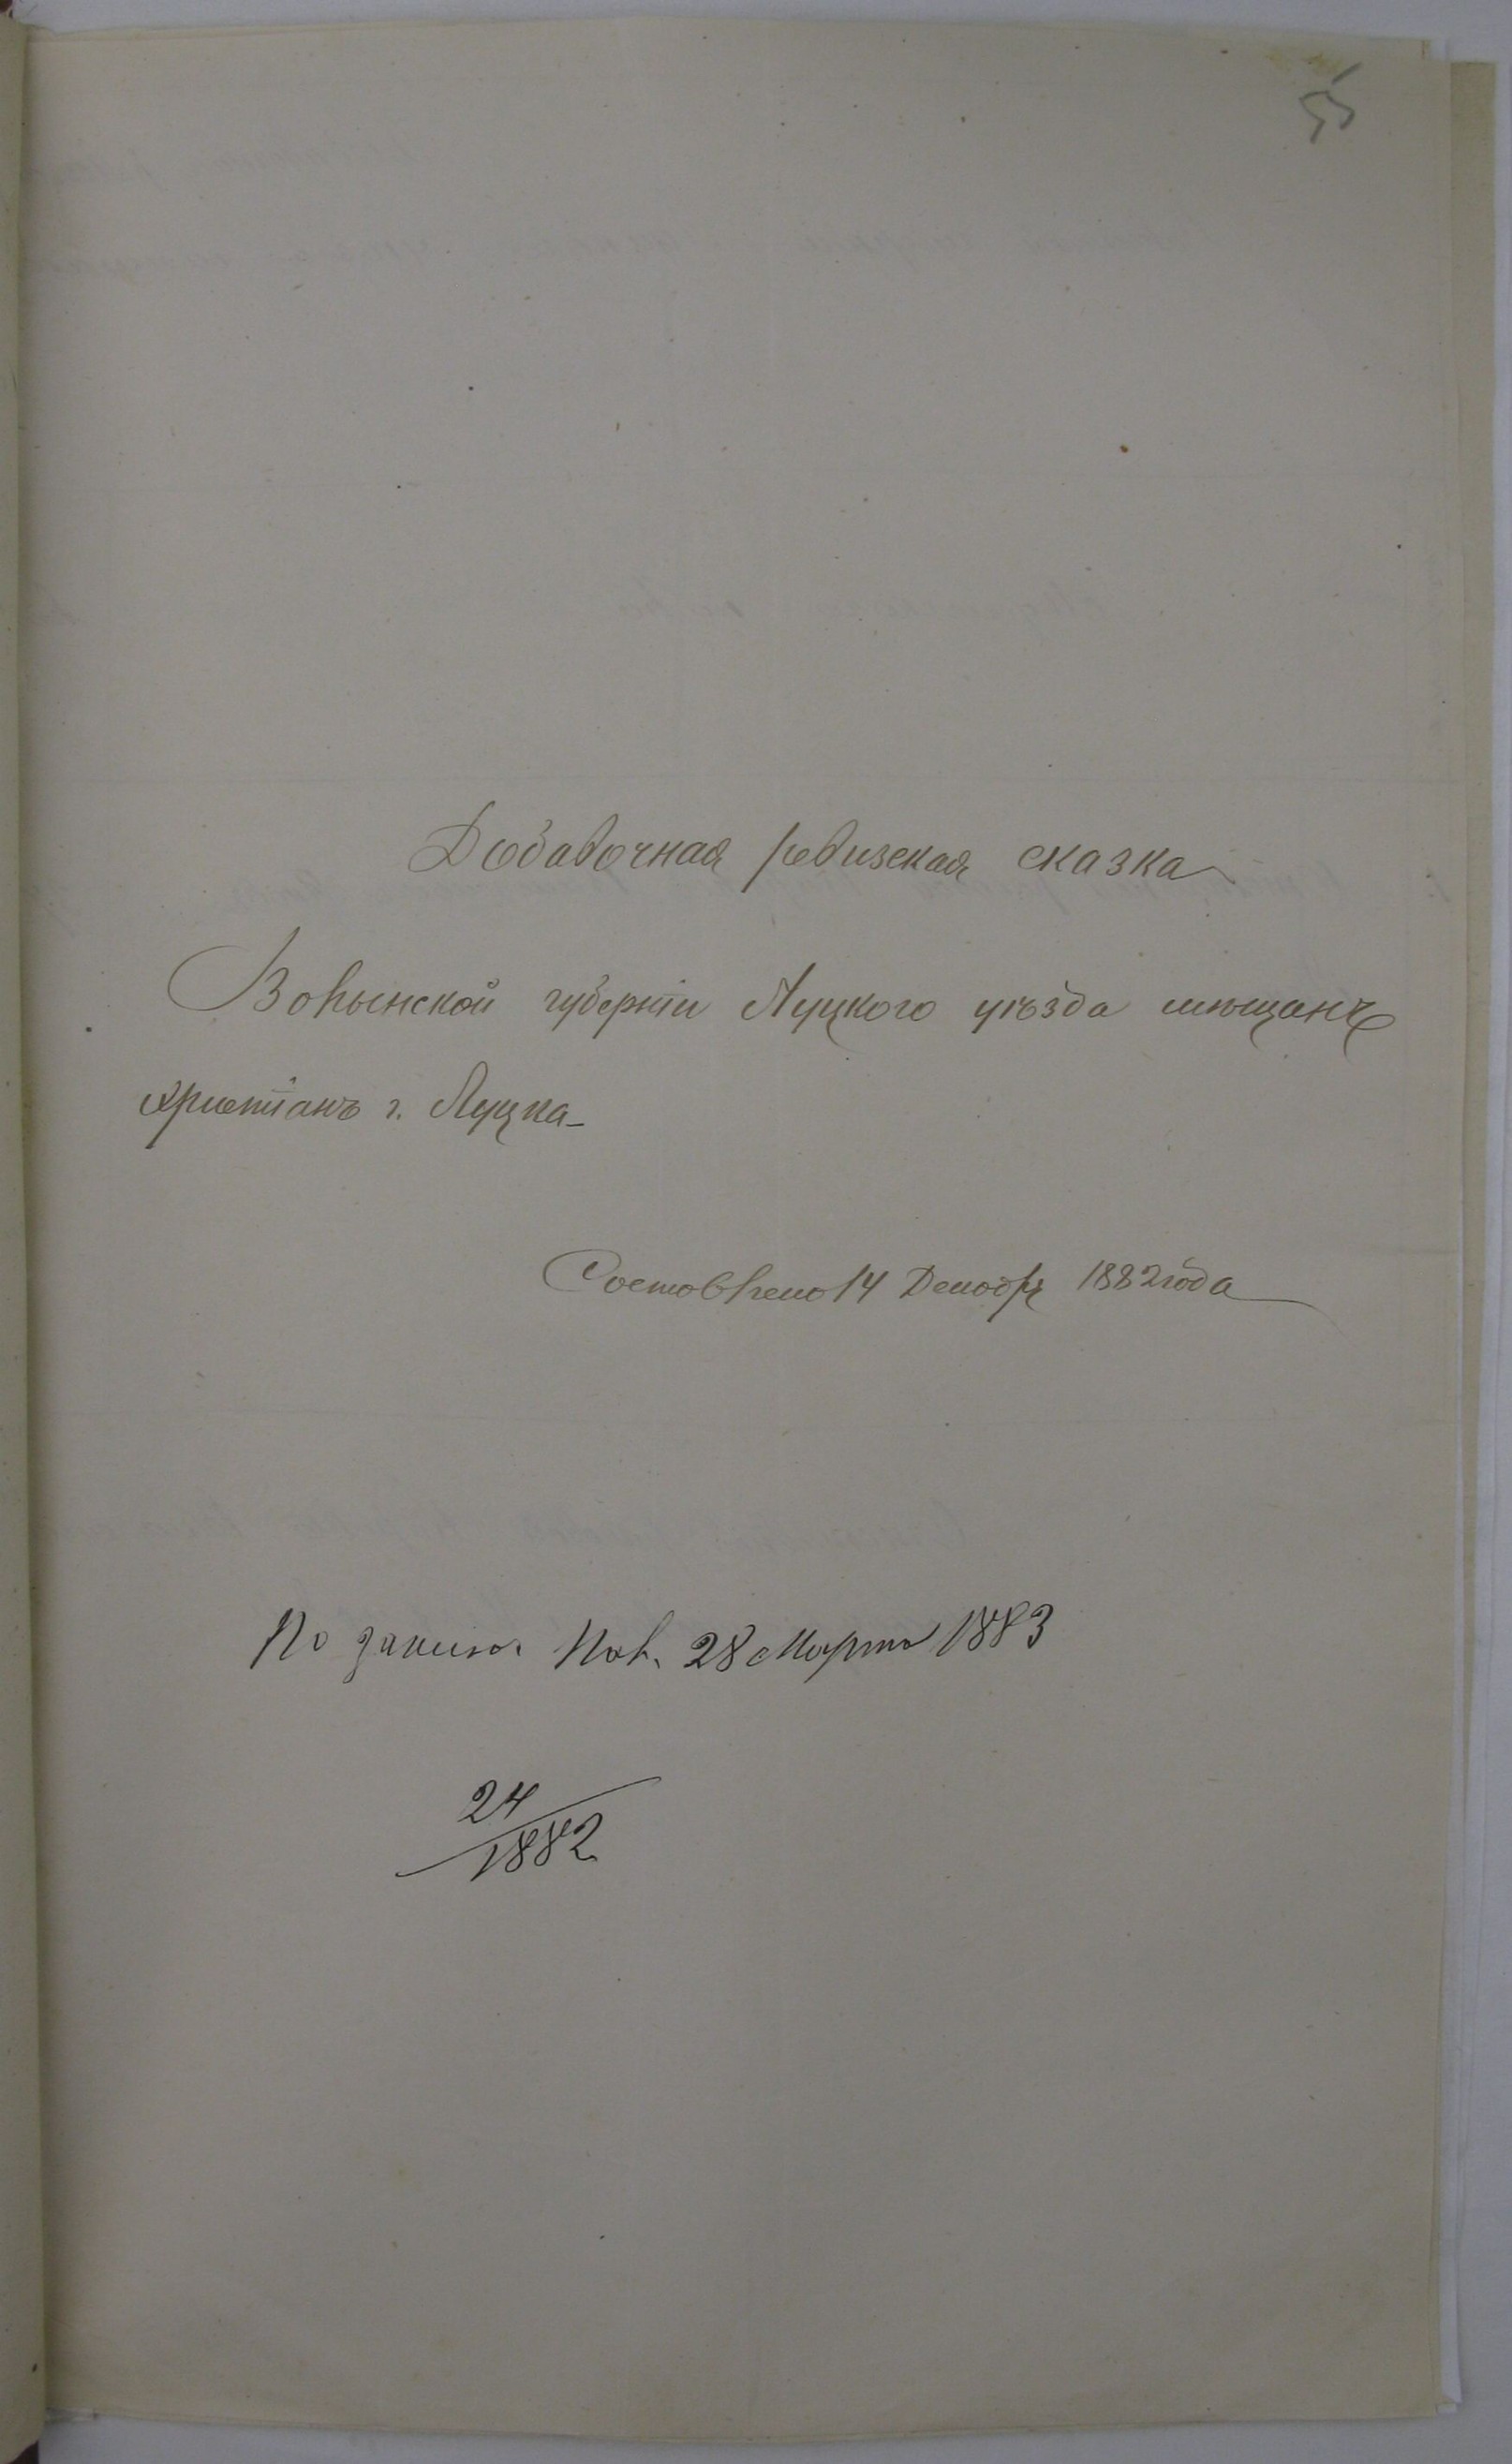 55
Добавочная ревизская сказка
Волынской губерніи Луцкого уѣзда мѣщанъ
христіанъ г. Луцка
Составлено 14 Декабря 1882 года
По заключ. Пал. 28 Марта 1883
24
1882